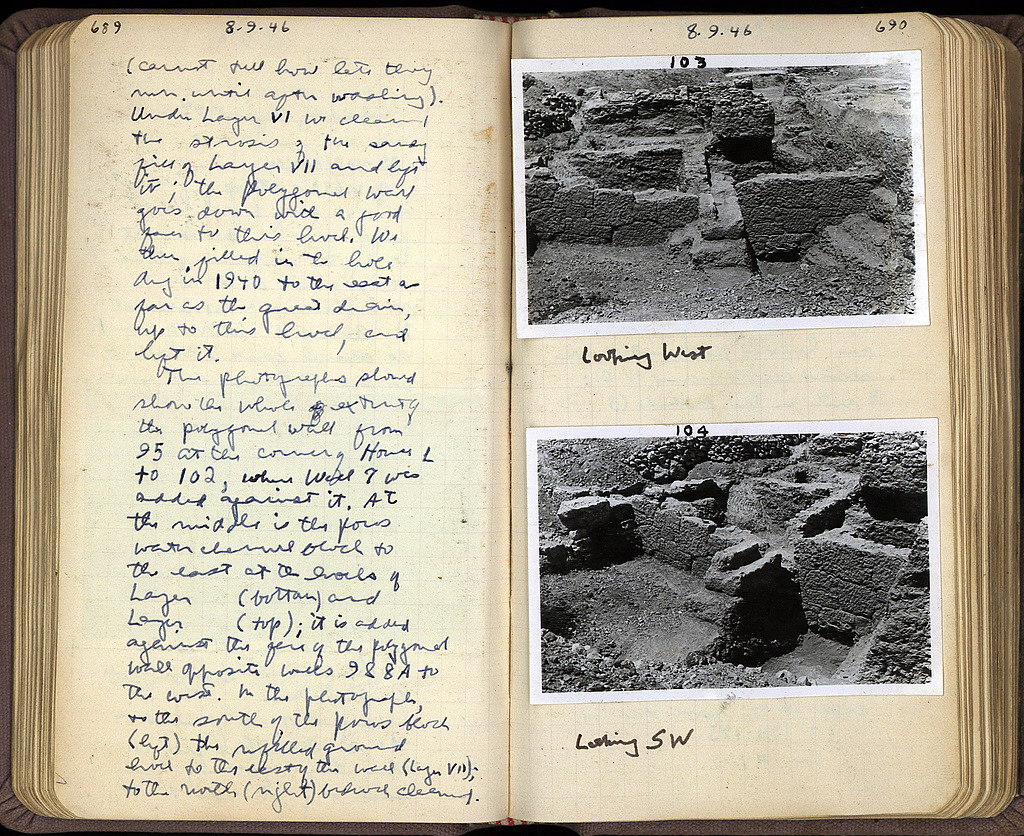 689
8.9.46
(cannot tell how late they
run until after washing).
Under Layer VI we cleaned
the strosis of the sandy
fill of Layer VII and left
it; the polygonal wall
goes down with a good
face to this level. We
then filled in the hole
dug in 1940 to the east as
far as the great drain,
up to this level, and
left it.
The photographs should
show the whole extent of
the polygonal wall from
95 at the corner of House L
to 102, where Wall 7 was
added against it. At
the middle is the poros
water channel block to
the east at the levels of
Layer (bottom) and
Layer (top); it is added
against the face of the polygonal
wall opposite walls 9 & 8A to
the west. In the photographs,
to the south of the poros block
(left) the refilled ground
level to the east of the wall (Layer VII);
to the north (right) bedrock cleaned.
8.9.46
690
103
Looking West
104
Looking SW